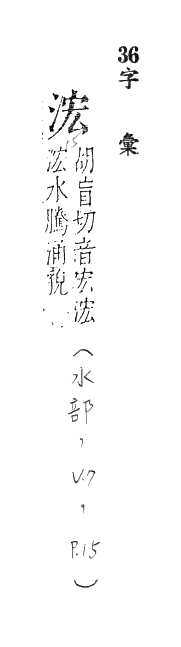 36字彙
浤
胡盲切音宏浤
浤水騰涌貌
(水部,V.7,P.15)